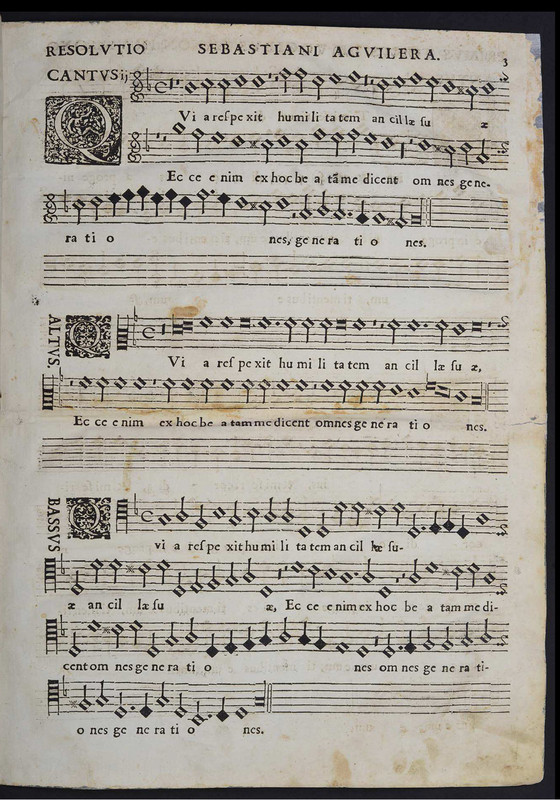 RESOLVTIO SEBASTIANI AGVILERA. 3
CANTVS ij
Q Vi a respe xit hu mi li ta tem an cil læ su æ
Ec ce e nim ex hoc be a tā me dicent om nes gene-
ra ti o nes, ge ne ra ti o nes.
ALTVS.
Q Vi a res pe xit hu mi li ta tem an cil læ su æ,
Ec ce e nim ex hoc be a tam me dicent omnes ge ne ra ti o nes.
BASSVS
Q vi a res pe xit hu mi li ta tem an cil læ su-
æ an cil læ su æ, Ec ce e nim ex hoc be a tam me di-
cent om nes ge ne ra ti o nes om nes ge ne ra ti-
o nes ge ne ra ti o nes.